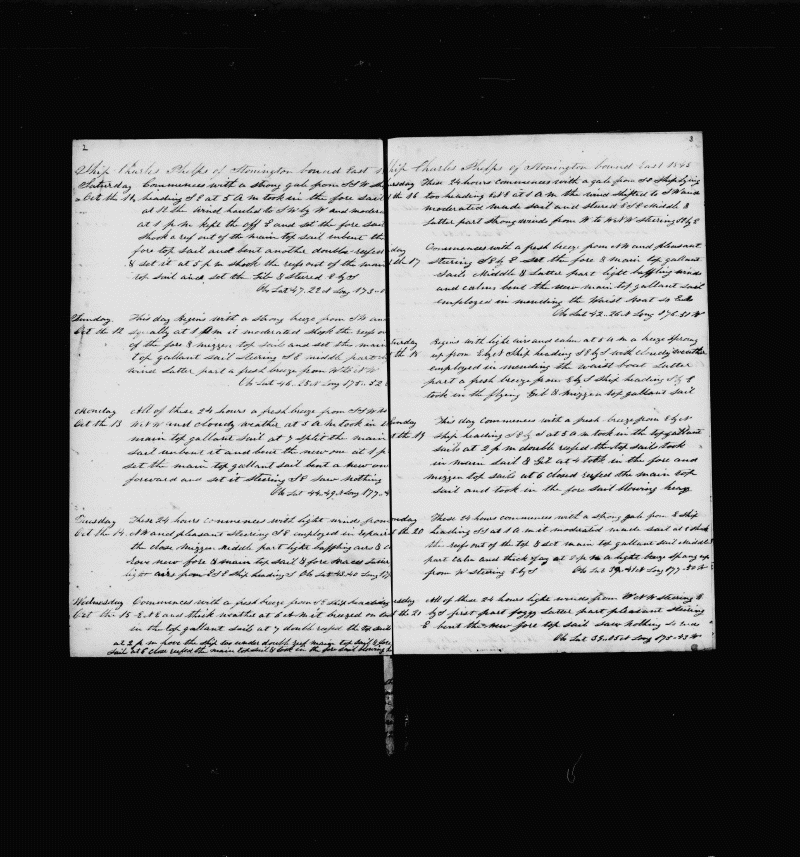 2
Ship Charles Phelps of Stonington bound East
Saturday Commences with a strong gale from S W
Oct the 11 heading S E at 5 A m took in the fore sail
at 12 the wind hauled to S W by W and
at 1 P m kept the off E and set the fore sail
shook a reef out of the main top sail unbent the
fore top sail and bent another double reefed
& set it at 5 p m shook the reefs out of the main
top sail and set the Gib & Steered E by S
Ob Lat 47.22 N Long 173
Sunday This day Begins with a strong breeze from S W and
Oct the 12 squally at 1 P m it moderated shook the reefs
of the fore & mizzen top sails and set the main
top gallant sail steering S E middle part
wind Latter part a fresh breeze from W to N W
Ob Lat 46 N Long 175.52
Monday All of these 24 hours a fresh breeze from
Oct the 13 W N W and cloudy weather at 5 A m took in
main top gallant sail at 7 split the main
sail unbent it and bent the new one at 1 p
set the main top gallant sail bent a new one
forward and set it Steering S E Saw Nothing
Ob Lat 44.49 N Long 177
Tuesday These 24 hours commences with light winds from
Oct the 14 N W and pleasant Steering S E employed in
the close Mizzen Middle part light baffling airs &
new fore & main top sail & fore braces Latter
light airs from E S E Ship heading S Ob Lat N Long
Wednesday Commences with a fresh breeze from Ship heading
Oct the 15 E N E and thick weather at 6 A m it breezed on
in the top gallant sails at 7 double reefed the
at 2 p m wove the ship under double reef main top sail &
sail at 5 close reefed the main top sail & took in the fore sail blowing
3
Ship Charles Phelps of Stonington bound East 1845
These 24 hours commences with a gale from S E Ship lying
the 16 too heading at 1 A m the wind shifted to S W and
moderated made sail and steered E S E Middle &
Latter part strong winds from W to W N W Steering S by E
Commences with a fresh breeze from N W and pleasant
the 17 Steering S by E set the fore & main top gallant
Sails Middle & Latter part light baffling winds
and calms bent the new main top gallant sail
employed in mending the Waist Boat So Ends
Ob Lat 42.26 N Long 176.31 W
Begins with light airs and calm at 5 A m a breeze sprung
the 18 up from E by N Ship heading S E by S with cloudy weather
employed in mending the waist boat Latter
part a fresh breeze from E by S Ship heading S by E
took in the flying Gib & Mizzen top gallant sail
This day commences with a fresh breeze from E by N
the 19 ship heading S E by S at 5 A m took in the top gallant
sails at 2 p m double reefed the top sails took
in main sail & Gib at 4 took in the fore and
mizzen top sails at 6 closed reefed the main top
sail and took in the fore sail blowing heavy
These 24 hours commences with a strong gale from E ship
the 20 heading S S at 5 A m it moderated made sail at 1 shook
the reefs out of the top & set main top gallant sail Middle
part calm and thick fog at 8 p m a light breeze sprang up
from W Steering E by S Ob Lat 39.41 N Long 177.30 W
All of these 24 hours light winds from W N W Steering E
the 21 by S first part foggy Latter part pleasant Steering
E bent the new fore top sail saw nothing So Ends
Ob Lat 39.05 N Long 175.43 W